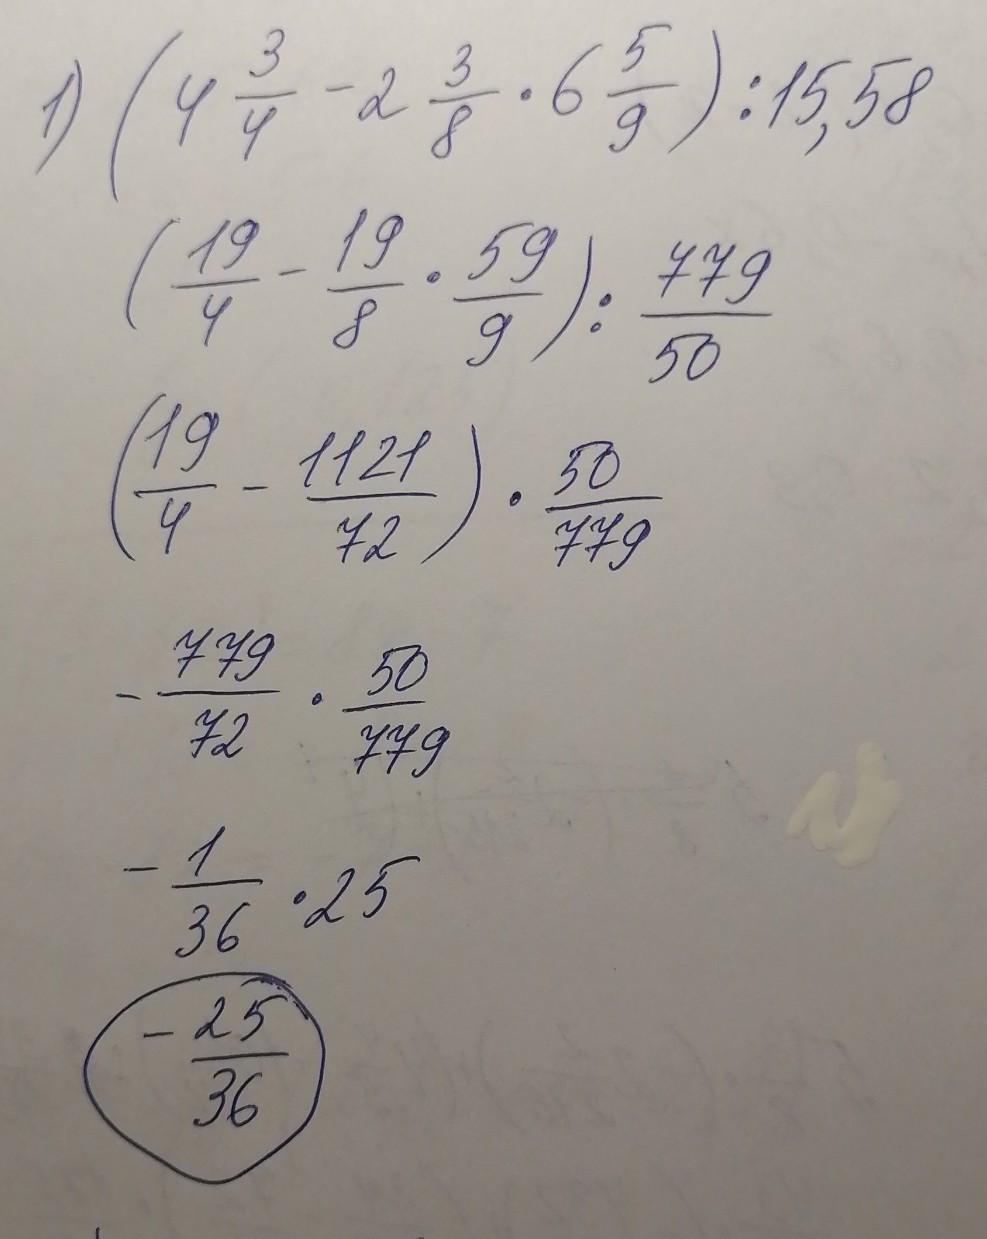 1) (4 3/4 - 2 3/8 · 6 5/9) : 15,58
(19/4 - 19/8 · 59/9) : 779/50
(19/4 - 1121/72) · 50/779
- 779/72 · 50/779
- 1/36 · 25
- 25/36